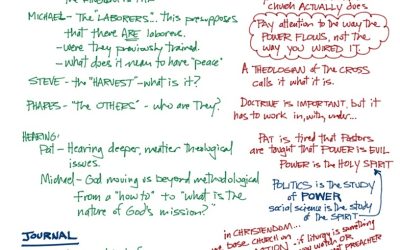 MICHAEL - The "LABORERS"... this presupposes
that there ARE laborers.
- were they previously trained
- what does it mean to have "peace"
STEVE - the "HARVEST" - what is it?
PHAPES - "the OTHERS" - who are they?
HEARING:
Pat - Hearing deeper, meatier theological
issues.
Michael - God moving us beyond methodological
from a "how to" to "what is the
nature of God's mission?"
JOURNAL
church ACTUALLY does
Pay attention to the way the
POWER FLOWS, not the
way you WIRED IT.
A THEOLOGIAN of the CROSS
calls it what it is.
DOCTRINE IS IMPORTANT, but it
has to work in, with, under...
PAT is tired that Pastors
are taught that POWER is EVIL
POWER is the HOLY SPIRIT
POLITICS is the STUDY
of POWER
social science is the study
of the SPIRIT
in CHRISTENDOM...
base church on
if liturgy is something
you watch OR
PREACHER